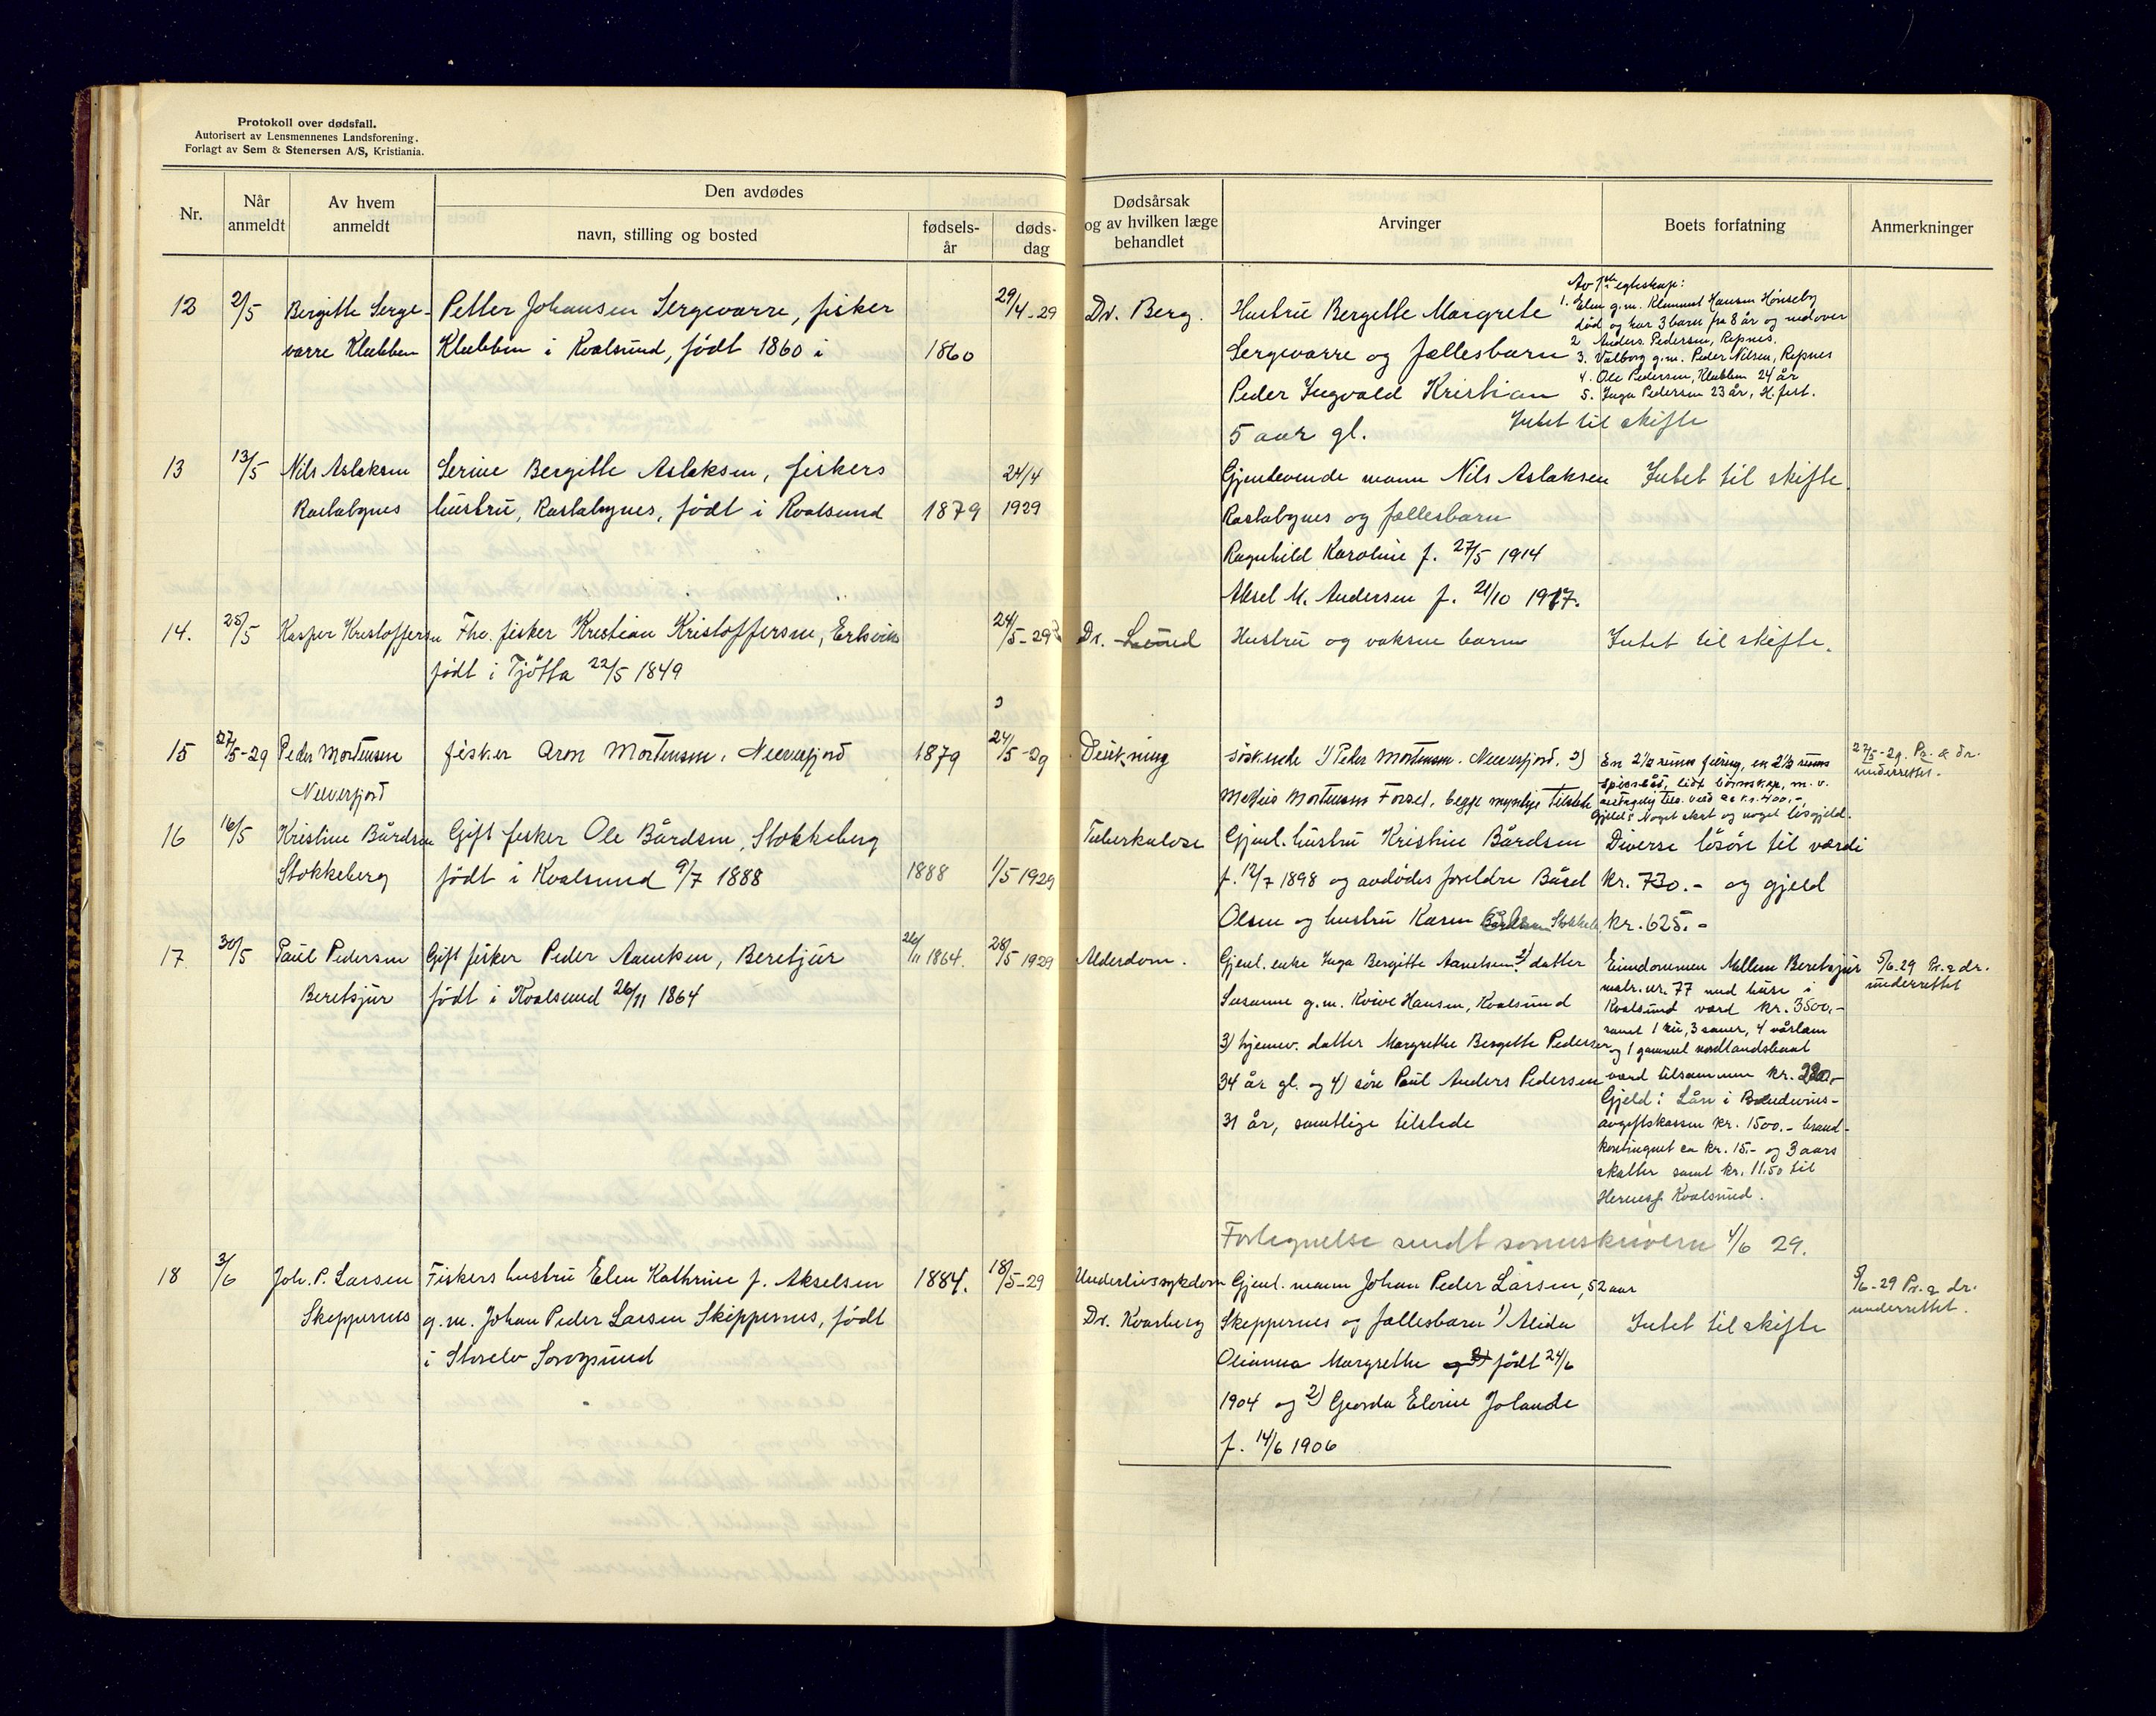 Protokoll over dødsfall.
Autorisert av Lensmennenes Landsforening.
Forlagt av Sem & Stenersen A/S, Kristiania.
Nr.
Når anmeldt
Av hvem anmeldt
Den avdødes
navn, stilling og bosted
fødsels-år
døds-dag
Dødsårsak og av hvilken læge behandlet
Arvinger
Boets forfatning
Anmerkninger
12
2/5
Bergitte Serge-
varre Klubben
Petter Johansen Sergevarre, fisker
Klubben i Kvalsund, født 1860 i
1860
29/4-29
Dr. Berg.
Hustru Bergette Margrete
Sergevarre og fællesbarn
Peder Ingvald Kristian
5 aar gl.
Av 1ste egteskap:
1. Elen g.m. Klemmet Hansen Hønseby
død og har 3 barn fra 8 år og nedover
2 Anders Pedersen, Repnes.
3. Valborg g.m. Peder Nilsen, Repnes
4. Ole Pedersen, Klubben 24 år
5. Inga Pedersen 23 år, H.fest.
Intet til skifte
13
13/5
Nils Aslaksen
Rastabynes
Serine Bergitte Aslaksen, fiskers
hustru, Rastabynes, født i Kvalsund
1879
24/4
1929
Gjenlevende mann Nils Aslaksen
Rastabynes og fællesbarn
Ragnhild Karoline f. 27/5 1914
Aksel M. Andersen f. 21/10 1917.
Intet til skifte.
14.
25/5
Kasper Kristoffersen
Fhv. fisker Kristian Kristoffersen, Erksvik
født i Tjøtta 22/5 1849
24/5-29
Dr. Lund
Hustru og voksne barn
Intet til skifte.
15
27/5-29
Peder Mortensen
Neverfjord
fisker Aron Mortensen, Neverfjord
1879
24/5-29
Drukning
søskende 1) Peder Mortensen. Neverfjord. 2)
Mathis Mortensen Forsøl, begge myndige tilstede
En 2 1/2 rums færing, en 2 1/2 rums
spissbåt, lidt børnskap, m.v.
antagelig tils. værd ca kr. 400,-
Gjeld: Noget skat og noget løsgjeld.
27/5-29. Pr. & dr.
underrettet.
16
16/5
Kristine Bårdsen
Stokkeberg
Gift fisker Ole Bårdsen, Stokkeberg
født i Kvalsund 9/7 1888
1888
1/5 1929
Tuberkulose
Gjenl. hustru Kristine Bårdsen
f. 12/7 1898 og avdødes foreldre Bård
Olsen og hustru Karen Stokkeb.
Diverse løsøre til værdi
kr. 730.- og gjeld
kr. 625.-
17
30/5
Paul Pedersen
Beretsjur
Gift fisker Peder Aanetsen, Beretjur
født i Kvalsund 26/11 1864
26/11 1864.
28/5 1929
Alderdom.
Gjenl. enke Inga Bergitte Aanetsen 2) datter
Susanne g.m. Kvive Hansen, Kvalsund
3) hjemmev. datter Margrethe Bergette Pedersen
34 år gl. og 4) søn Paul Anders Pedersen
31 år, samtlige tilstede
Eiendommen Mellem Beretsjur
matr.nr. 77 med huse i
Kvalsund værd kr. 3500,-
samt 1 ku, 3 sauer, 4 vårlam
og 1 gammel nordlandsbaat
værd tilsammen kr. 220.-
Gjeld: Lån i
avgiftskassen kr. 1500.- brand-
kontingent ca kr. 15.- og 3 aars
skatter samt kr. 11.50 til
Kvalsund.
5/6-29 Pr. & dr.
underrettet
Fortegnelse sendt sorenskriveren 4/6 29.
18
3/6
Joh. P. Larsen
Skeppernes
Fiskers hustru Elen Kathrine f. Akselsen
g.m. Johan Peder Larsen Skippernes, født
i Storelv Sørøysund
1884.
18/5-29
Underlivssykdom
Dr. Kvarberg
Gjenl. mann Johan Peder Larsen, 52 aar
Skeppernes og fællesbarn 1) Alida
Olianna Margrethe og 2) født 24/6
1904 og 2) Gjorda Elerine Jolande
f. 14/6 1906
Intet til skifte
5/6-29 Pr. & dr.
underrettet.